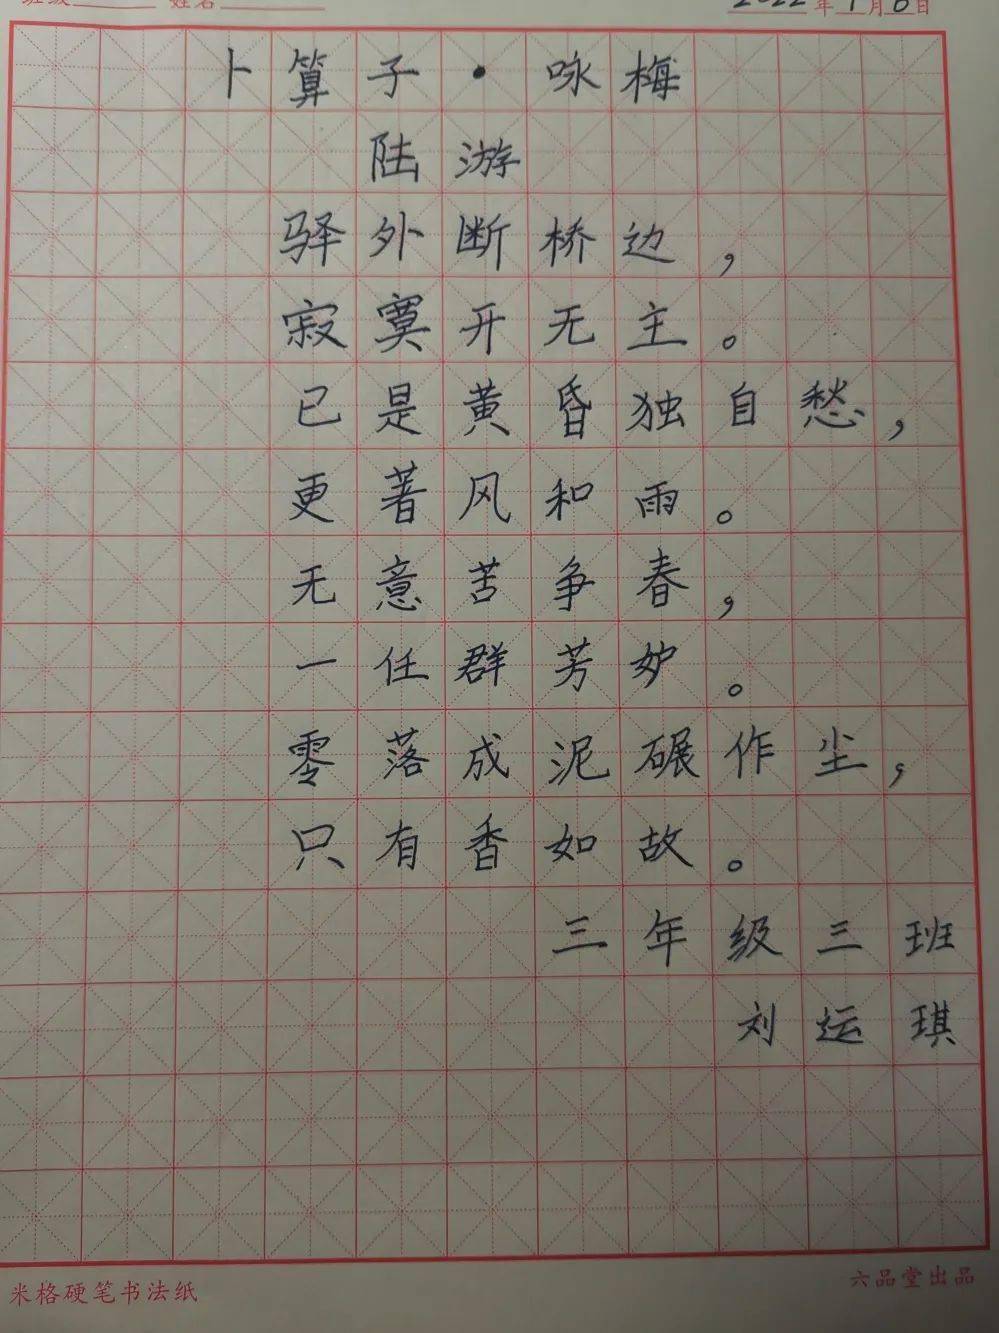 班级 姓名 2022年1月6日
卜算子·咏梅
陆游
驿外断桥边，
寂寞开无主。
已是黄昏独自愁，
更著风和雨。
无意苦争春，
一任群芳妒。
零落成泥碾作尘，
只有香如故。
三年级三班
刘运琪
米格硬笔书法纸 六品堂出品